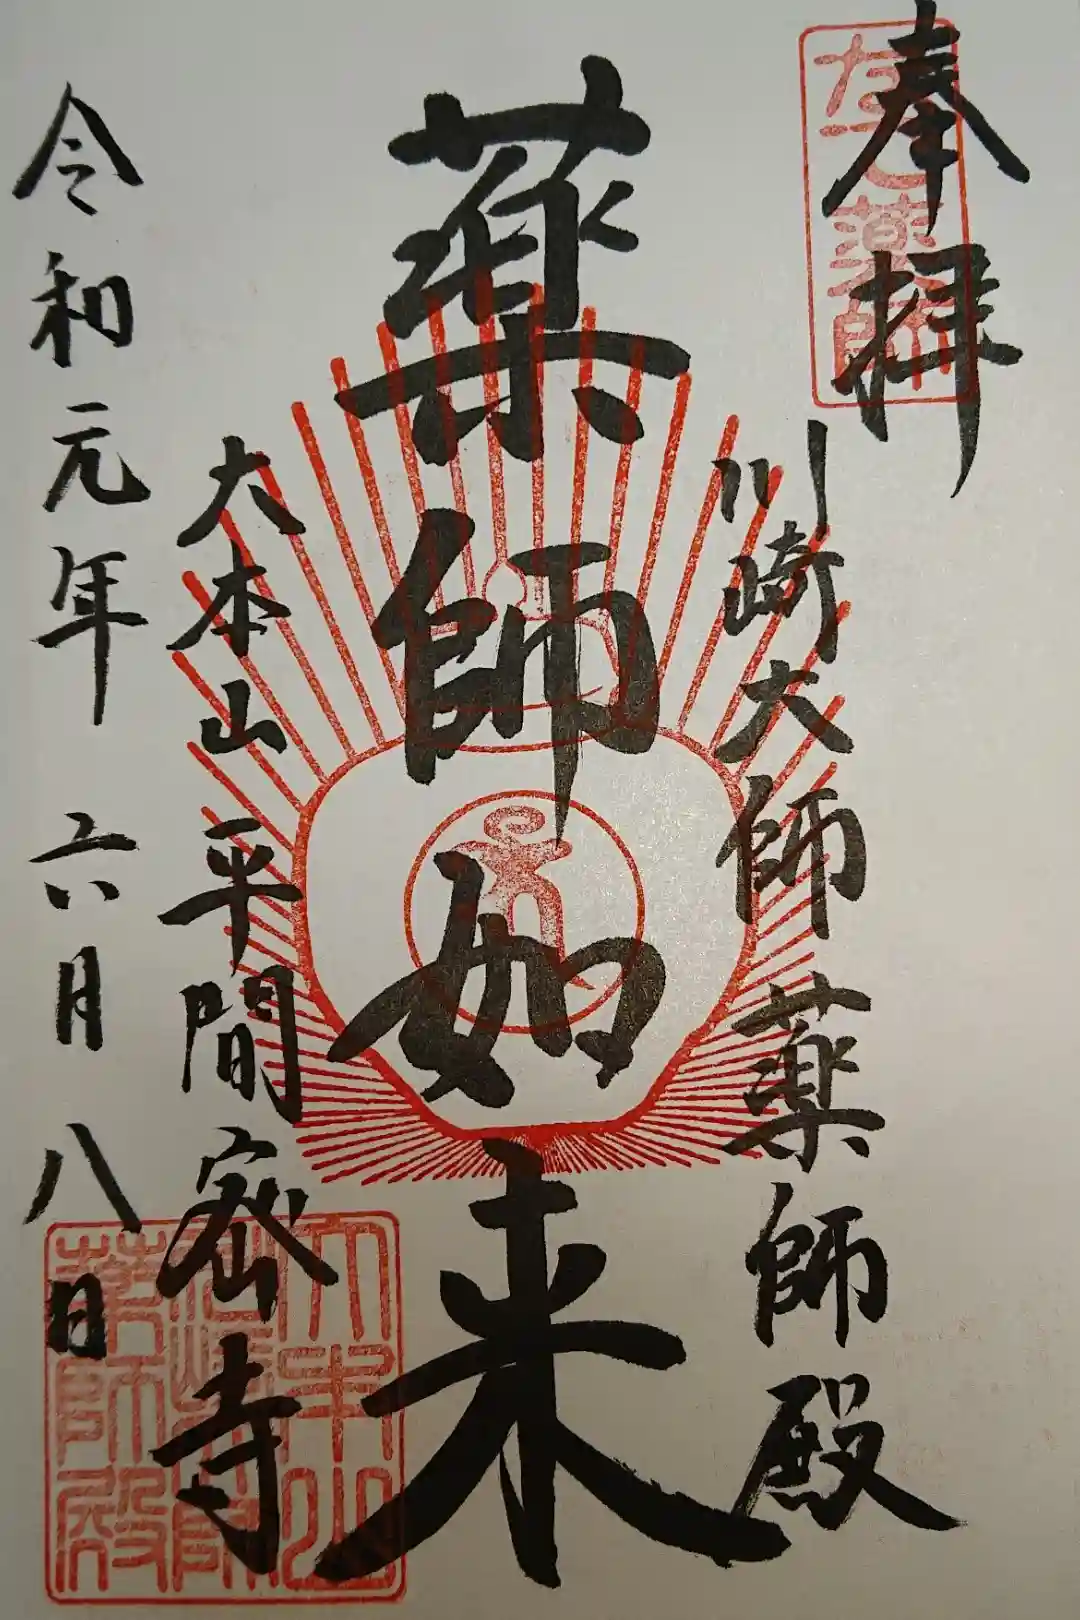 奉拝
川崎大師薬師殿
薬師如来
大本山平間密寺
令和元年六月八日
なで薬師
大本山
川崎大師
薬師殿